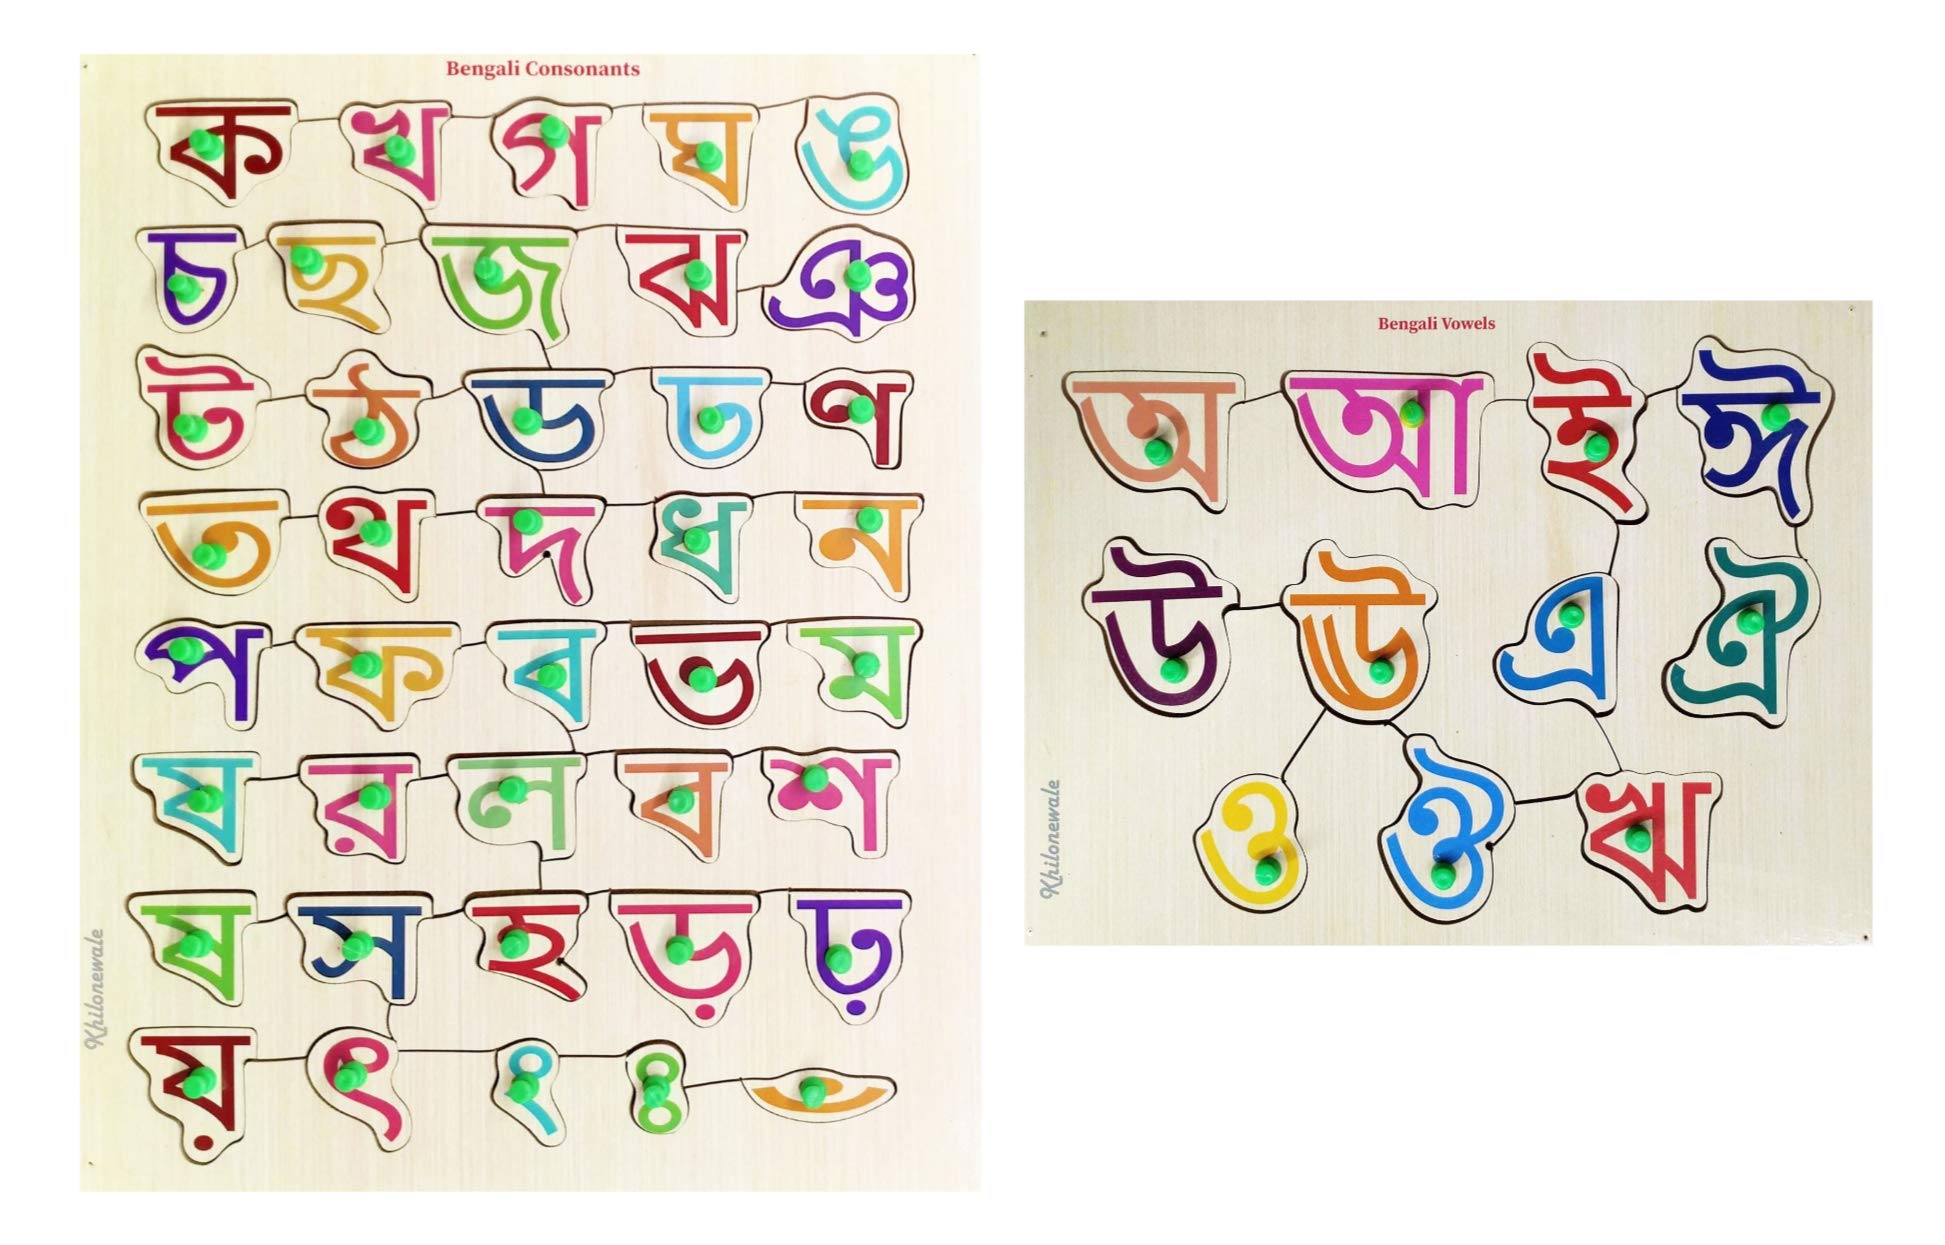 Bengali Consonants
ক খ গ ঘ ঙ
চ ছ জ ঝ ঞ
ট ঠ ড ঢ ণ
ত থ দ ধ ন
প ফ ব ভ ম
য র ল ব শ
ষ স হ ড় ঢ়
য় ৎ ং ঃ ঁ
Khilonewale
Bengali Vowels
অ আ ই ঈ
উ ঊ এ ঐ
ও ঔ ঋ
Khilonewale